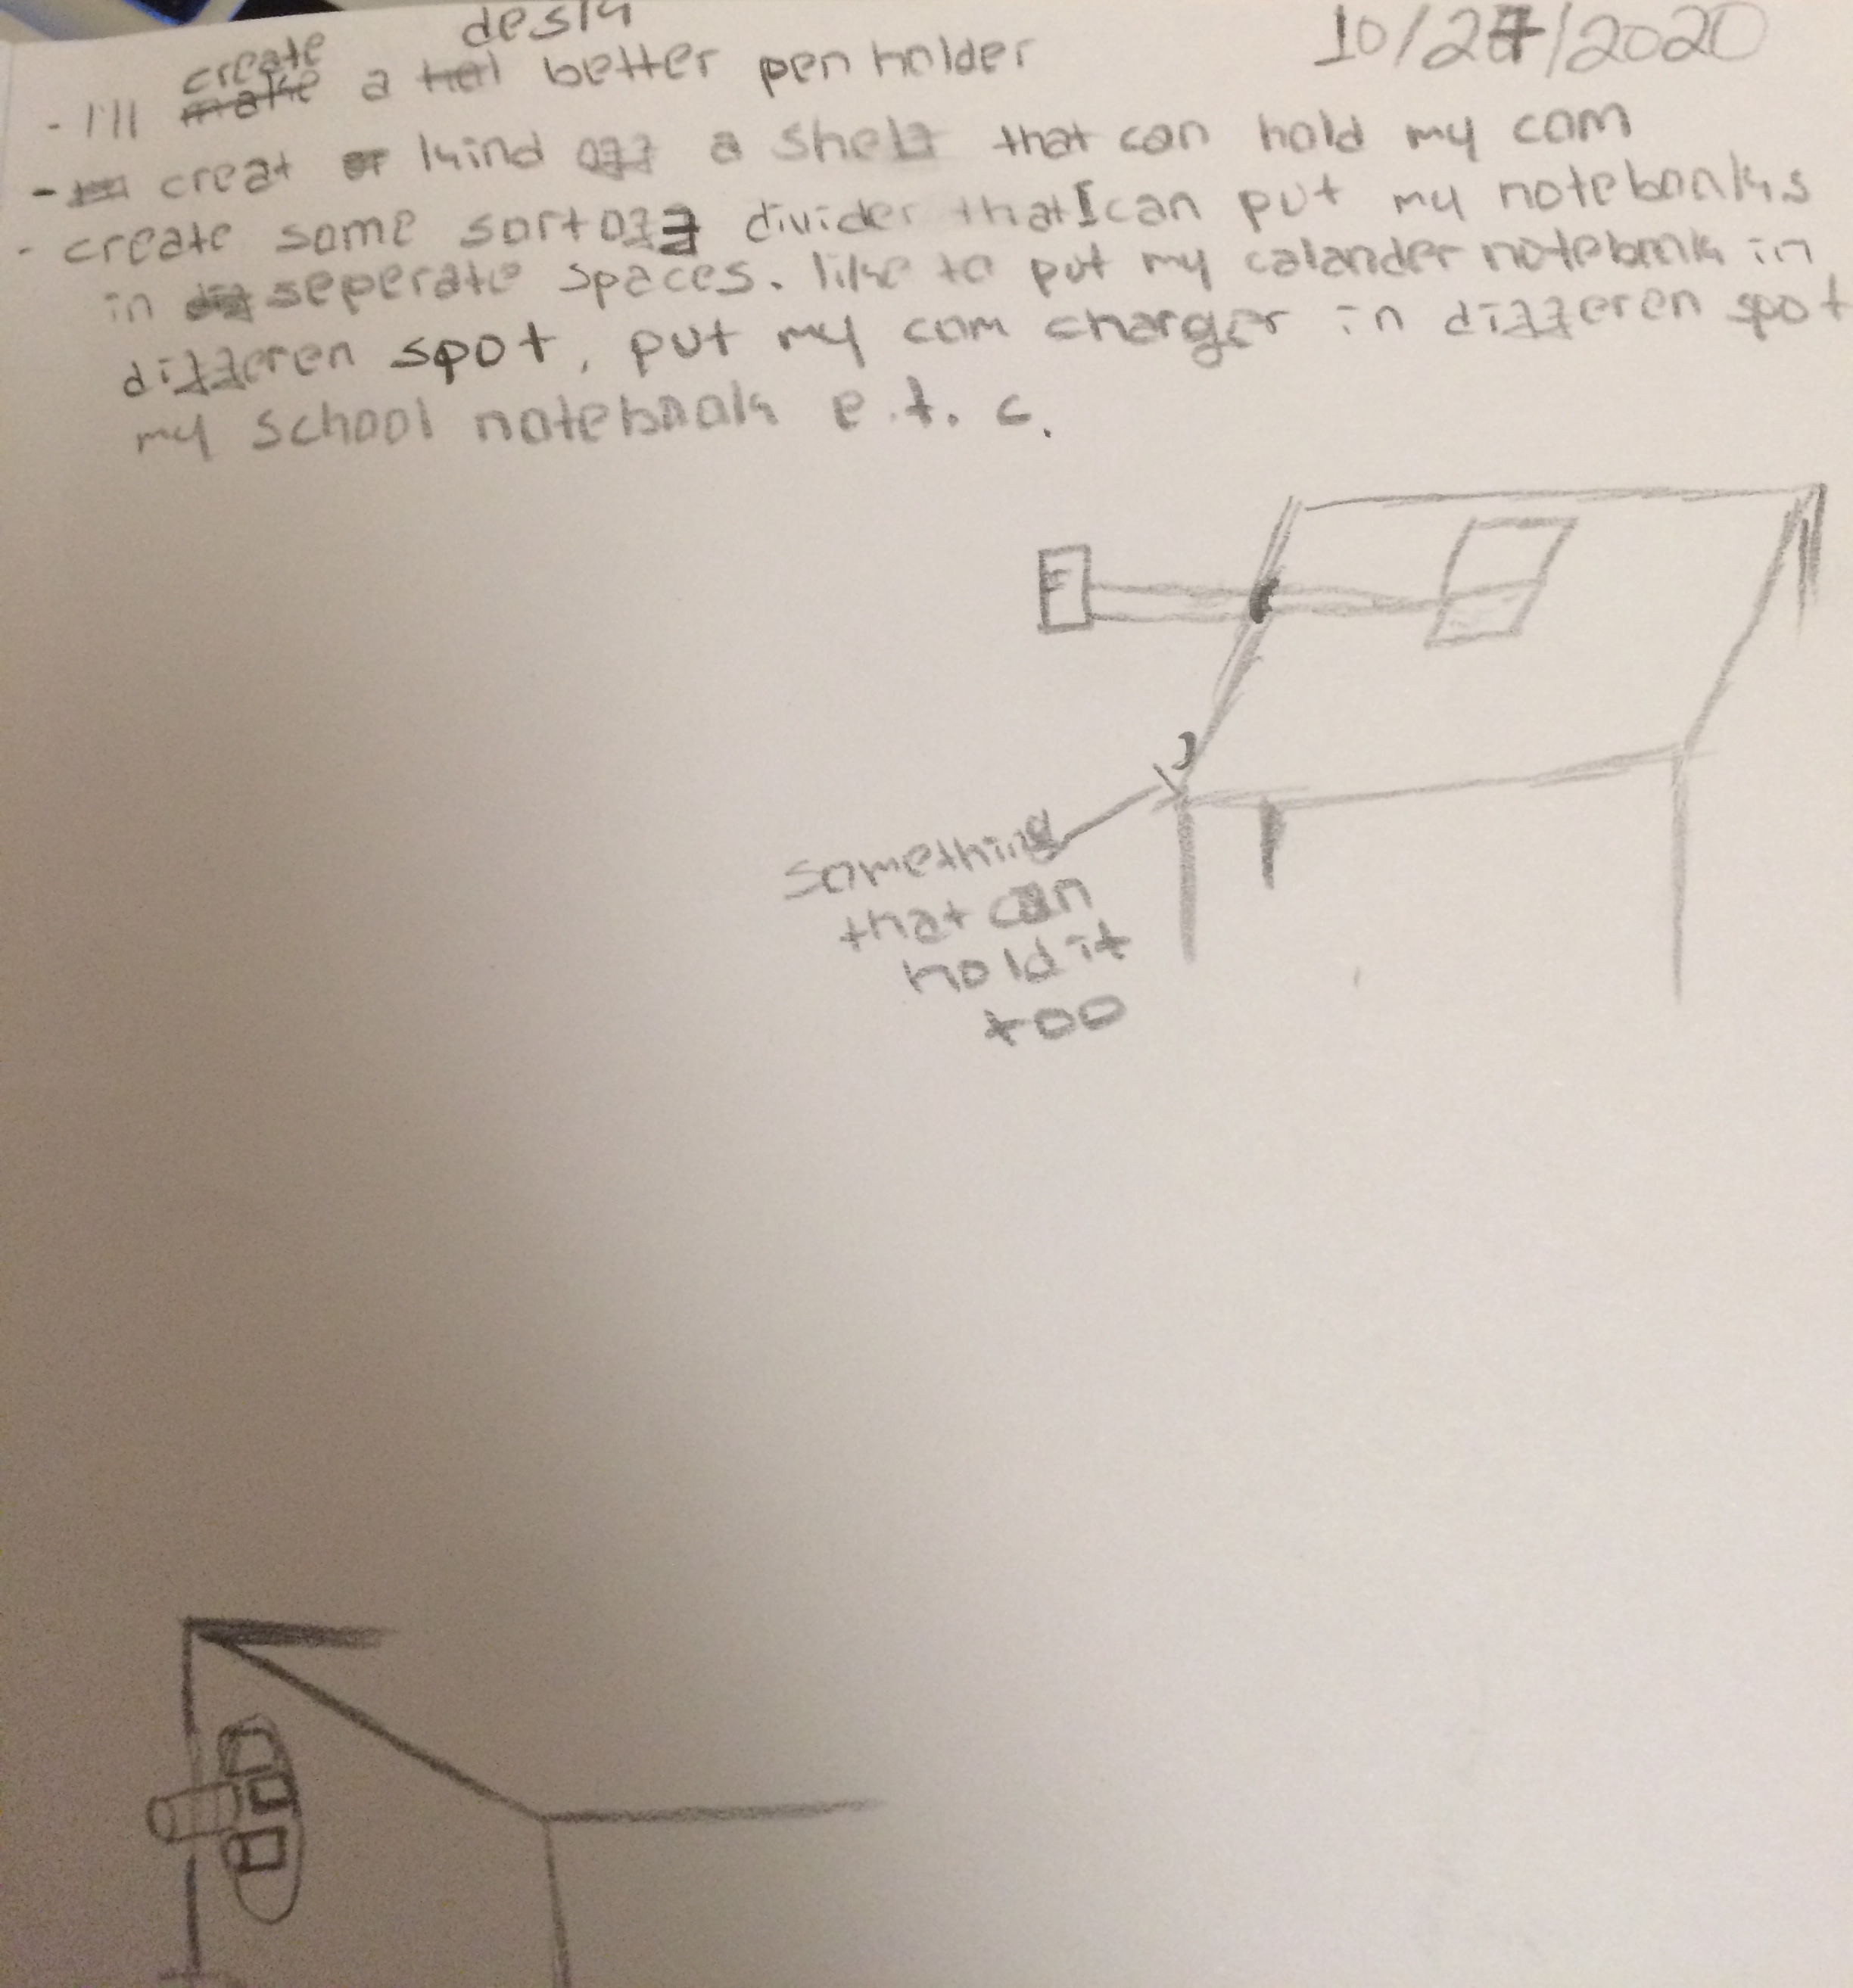 desk
10/27/2020
- I'll create a better pen holder
- creat kind off a shelf that can hold my com
- create some sort off divider that I can put my notebooks
in seperate spaces. like to put my calander notebook in
differen spot, put my com charger in differen spot
my school notebook e.t.c.
something
that can
hold it
too